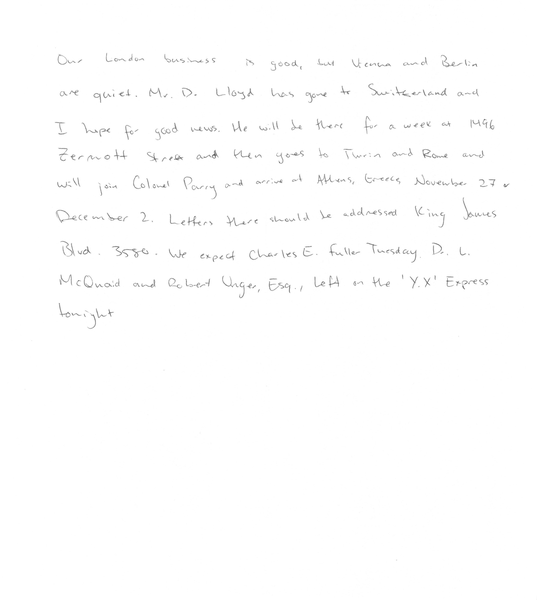 Our London business is good, but Vienna and Berlin
are quiet. Mr. D. Lloyd has gone to Switzerland and
I hope for good news. He will be there for a week at 1496
Zermott Street and then goes to Turin and Rome and
will join Colonel Parry and arrive at Athens, Greece, November 27 or
December 2. Letters there should be addressed King James
Blvd. 3580. We expect Charles E. Fuller Tuesday. Dr. L.
McQuaid and Robert Unger, Esq., left on the 'Y.X' Express
tonight